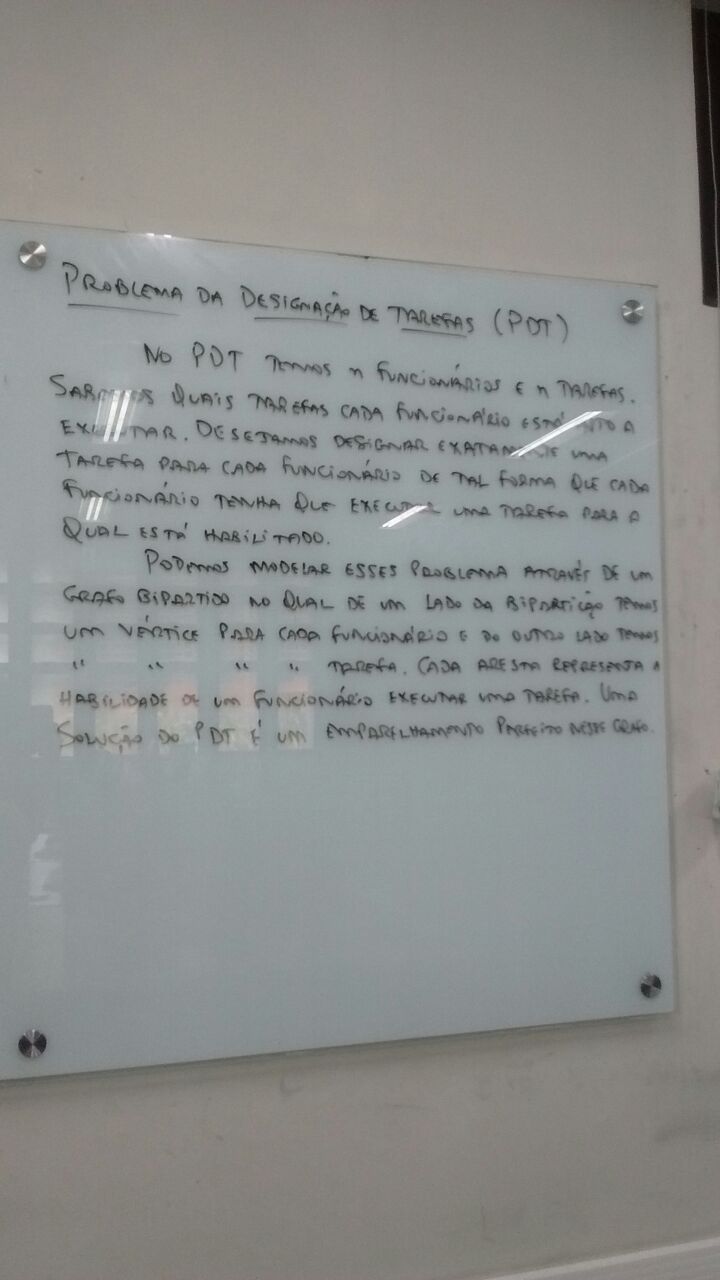 PROBLEMA DA DESIGNAÇÃO DE TAREFAS (PDT)
NO PDT TEMOS n FUNCIONÁRIOS E n TAREFAS.
SABEMOS QUAIS TAREFAS CADA FUNCIONÁRIO ESTÁ APTO A
EXECUTAR. DESEJAMOS DESIGNAR EXATAMENTE UMA
TAREFA PARA CADA FUNCIONÁRIO DE TAL FORMA QUE CADA
FUNCIONÁRIO TENHA QUE EXECUTAR UMA TAREFA PARA A
QUAL ESTÁ HABILITADO.
PODEMOS MODELAR ESSES PROBLEMA ATRAVÉS DE UM
GRAFO BIPARTIDO NO QUAL DE UM LADO DA BIPARTIÇÃO TEMOS
UM VÉRTICE PARA CADA FUNCIONÁRIO E DO OUTRO LADO TEMOS
" " " " TAREFA. CADA ARESTA REPRESENTA A
HABILIDADE DE UM FUNCIONÁRIO EXECUTAR UMA TAREFA. UMA
SOLUÇÃO DO PDT É UM EMPARELHAMENTO PERFEITO NESSE GRAFO.